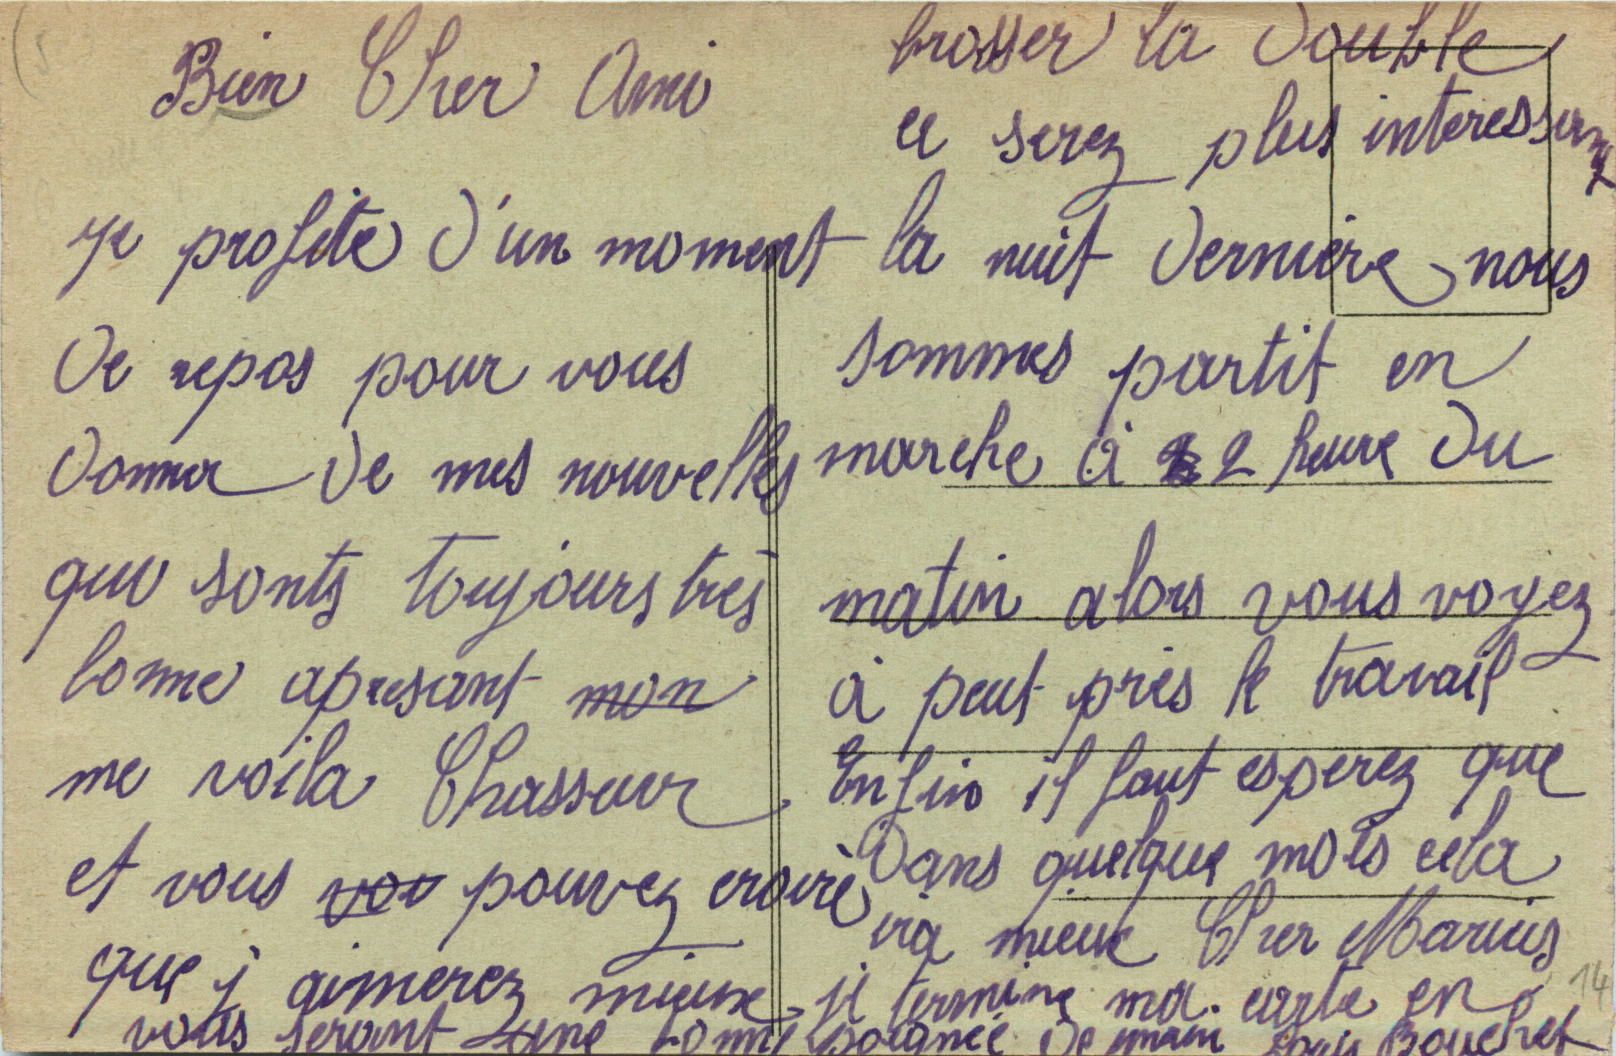 Bien Cher Ami
je profite d'un moment
de repos pour vous
donner de mes nouvelles
qui sonts toujours très
bonne apresant mon
me voila Chasseur
et vous vou pouvez croire
que j aimerez mieux
brosser la double
ce serez plus interessent
la nuit dernière nous
sommes partit en
marche à 2 heure du
matin alors vous voyez
à peut près le travail
Enfin il faut esperez que
dans quelque mois cela
ira mieux Cher Marius
je termine ma carte en
vous serant une bonne poignée de main Bouchet
14